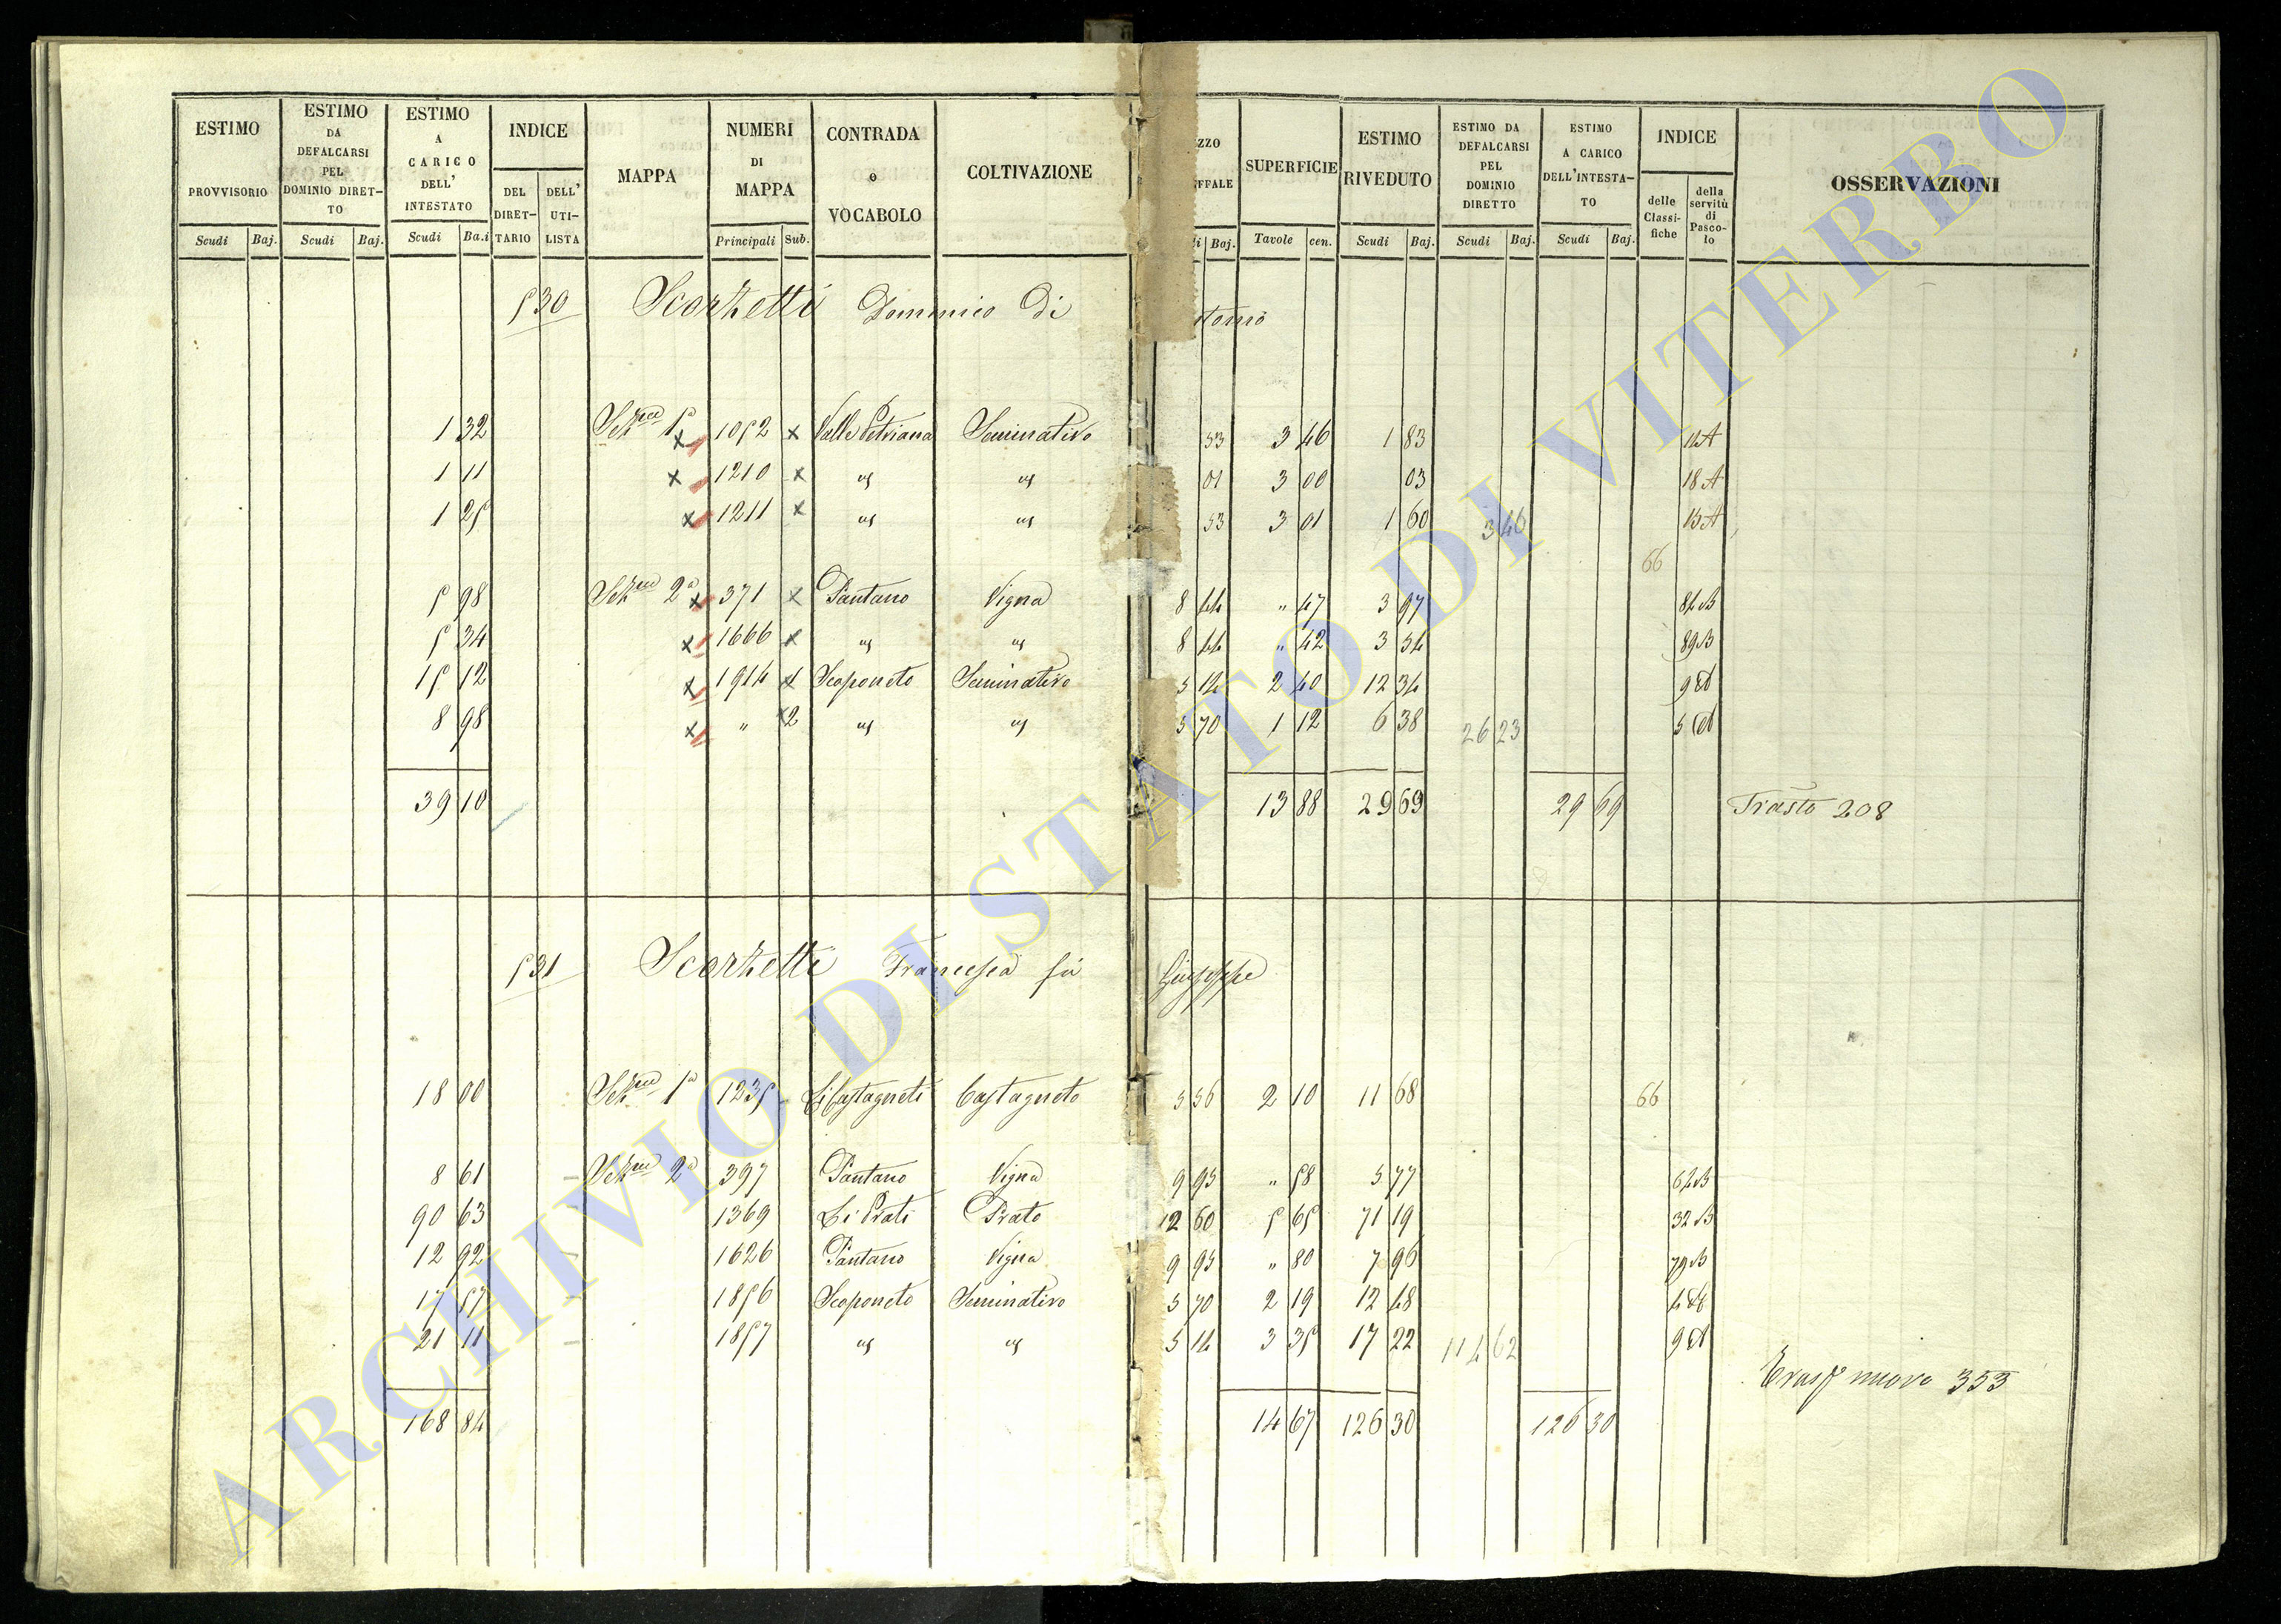 ESTIMO PROVVISORIO Scudi Baj.
ESTIMO DA DEFALCARSI PEL DOMINIO DIRET-TO Scudi Baj.
ESTIMO A CARICO DELL' INTESTATO Scudi Ba.i
INDICE DEL DIRET-TARIO DELL' UTI-LISTA
MAPPA
NUMERI DI MAPPA Principali Sub.
CONTRADA o VOCABOLO
COLTIVAZIONE
ZZO IFFALE Baj.
SUPERFICIE Tavole cen.
ESTIMO RIVEDUTO Scudi Baj.
ESTIMO DA DEFALCARSI PEL DOMINIO DIRETTO Scudi Baj.
ESTIMO A CARICO DELL'INTESTA-TO Scudi Baj.
INDICE delle Classi-fiche della servitù di Pasco-lo
OSSERVAZIONI
530 Scorzetti Domenico Di tonio
1 32 Sezne 1a x 1052 x Valle Petriana Seminativo 53 3 46 1 83 14A
1 11 x 1210 x " " 01 3 00 03 18A
1 25 x 1211 x " " 53 3 01 1 60 3 46 15A
66
5 98 Sezne 2a x 371 x Pantano Vigna 8 44 " 47 3 97 84B
5 34 x 1666 x " " 8 44 " 42 3 54 89B
15 12 x 1914 1 Scoponeto Seminativo 5 14 2 40 12 34 9
8 98 x " 2 " " 5 70 1 12 6 38 26 23 5
39 10 13 88 29 69 29 69 Trasto 208
531 Scorzetti Francesca fu Giuseppe
18 00 Sezne 1a 1235 Li Castagneti Castagneto 5 56 2 10 11 68 66
8 61 Sezne 2a 397 Pantano Vigna 9 95 " 58 5 77 62B
90 63 1369 Li Prati Prato 12 60 5 65 71 19 32B
12 92 1626 Pantano Vigna 9 95 " 80 7 96 79B
17 57 1856 Scoponeto Seminativo 5 70 2 19 12 48 4
21 11 1857 " " 5 14 3 35 17 22 114 62 9
Trasp nuovo 353
168 84 14 67 126 30 126 30
ARCHIVIO DI STATO DI VITERBO